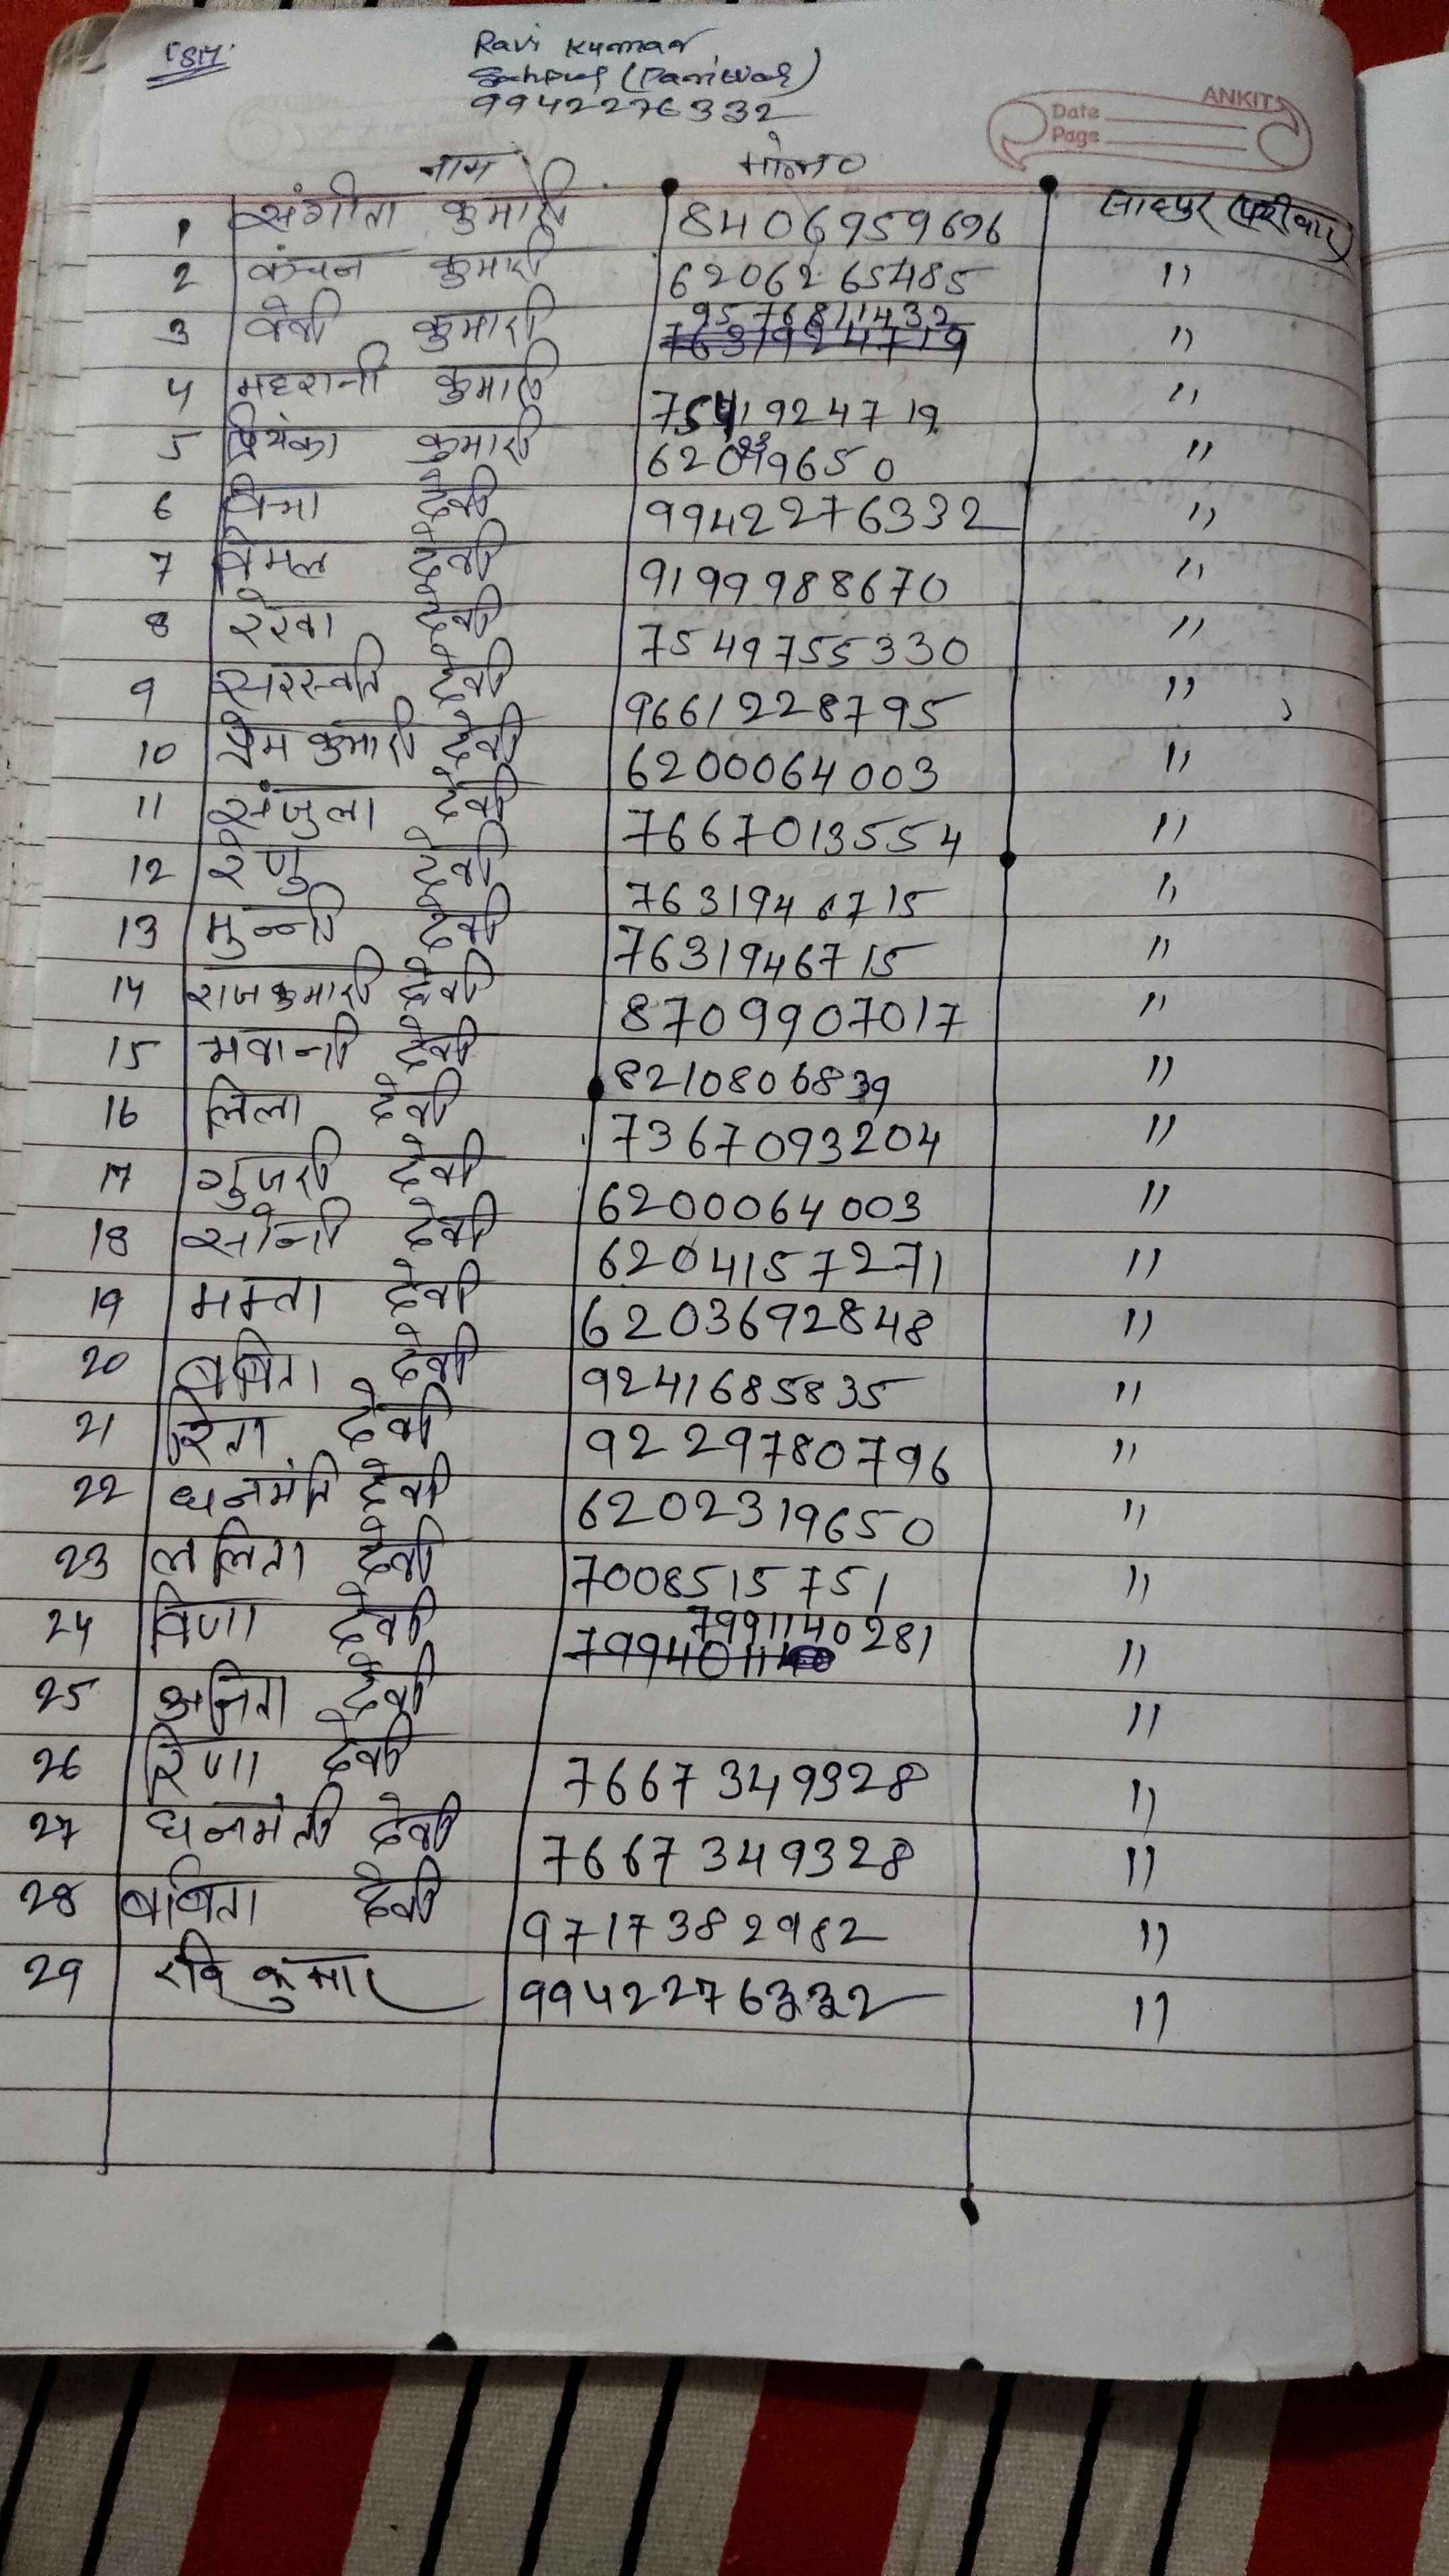 Ravi Kumar
9942276332
ANKIT
Date
Page
नाम मो०न०
1 संगीता कुमारी 8406959696 साहपुर
2 कंचन कुमारी 6206265485 "
3 वेवी कुमारी 9576811432 "
4 महरानी कुमारी 7541924719 "
5 प्रियंका कुमारी "
6 देवी 9942276332 "
7 विमल देवी 9199988670 "
8 रेखा देवी 7549755330 "
9 सरस्वति देवी 9661228795 "
10 प्रेम कुमारी देवी 6200064003 "
11 संजुला देवी 7667013554 "
12 रेणु देवी 7631946715 "
13 मुन्नी देवी 7631946715 "
14 राजकुमारी देवी 8709907017 "
15 भवानी देवी 8210806839 "
16 लिला देवी 7367093204 "
17 गुजरी देवी 6200064003 "
18 सोनी देवी 6204157271 "
19 ममता देवी 6203692848 "
20 बबिता देवी 9241685835 "
21 रिता देवी 9229780796 "
22 धनमंति देवी 6202319650 "
23 ललिता देवी 7008515751 "
24 विणा देवी 7991140281 "
25 अनिता देवी "
26 रिणा देवी 7667349328 "
27 धनमंती देवी 7667349328 "
28 बबिता देवी 9717382982 "
29 रवि कुमार 9942276332 "